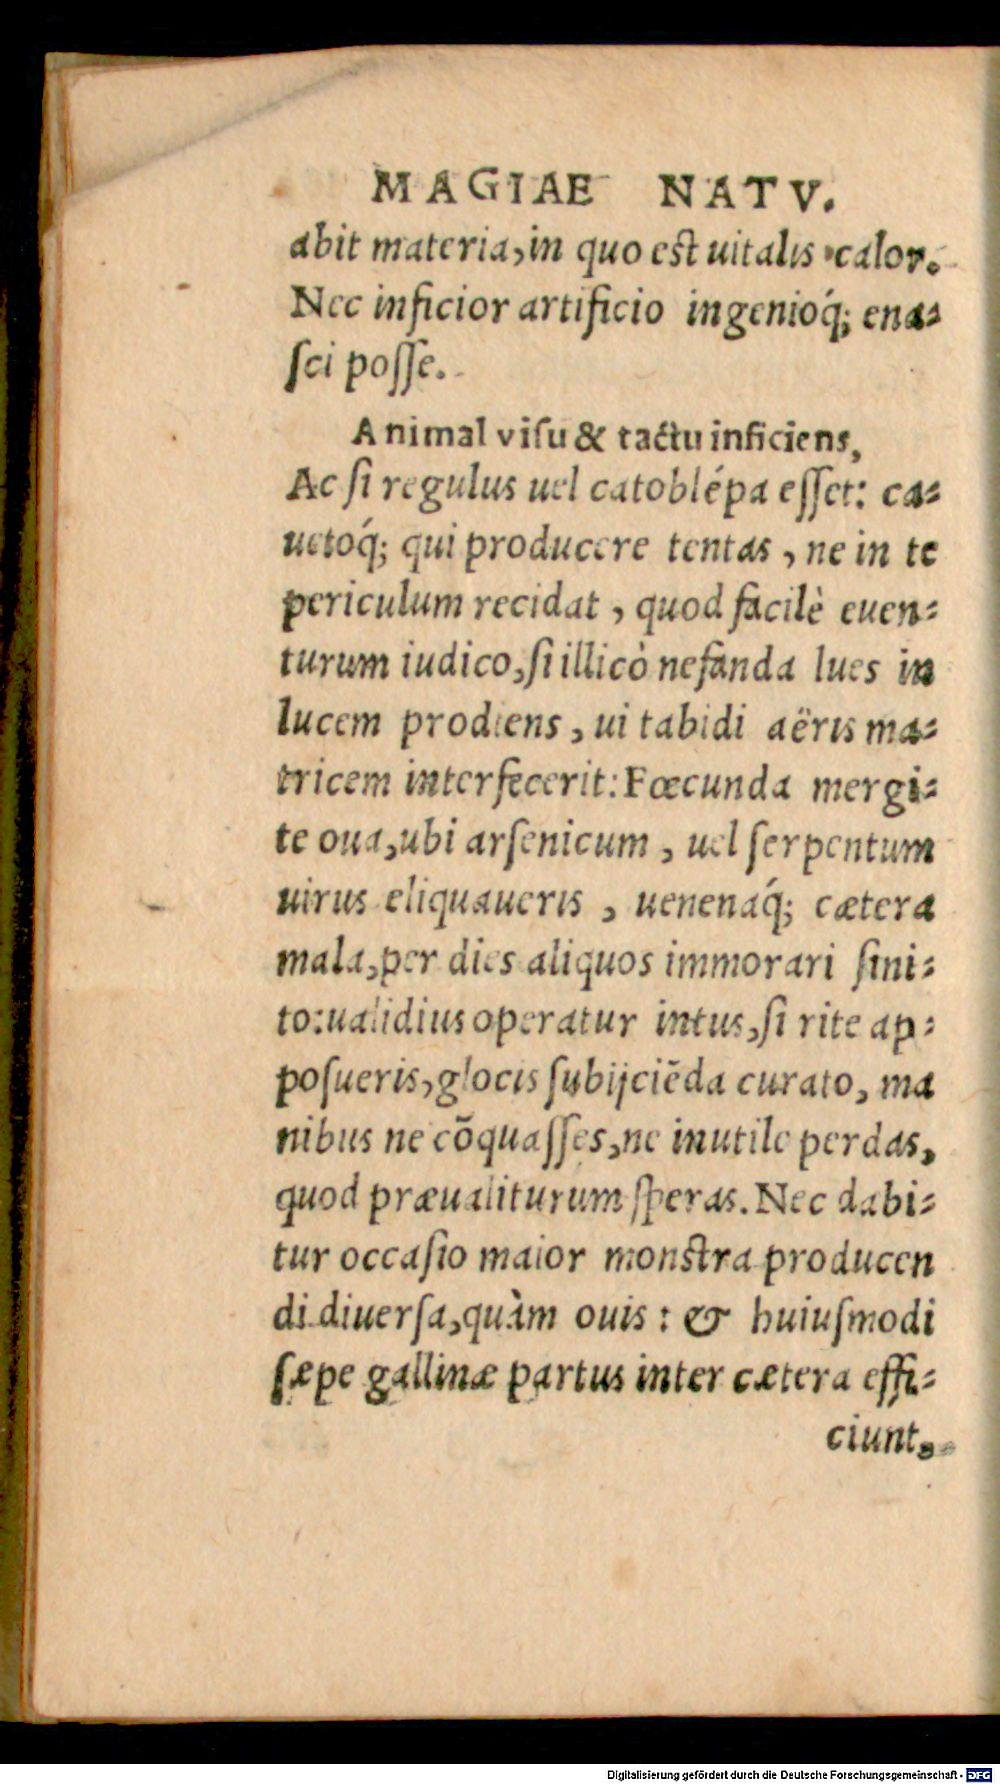 MAGIAE NATV.
abit materia, in quo est uitalis calor.
Nec inficior artificio ingenioq́; ena-
ſci poſſe.
Animal viſu & tactu inficiens,
Ac ſi regulus uel catoblépa eſſet: ca-
uetoq́; qui producere tentas, ne in te
periculum recidat, quod facilè euen-
turum iudico, ſi illicò nefanda lues in
lucem prodiens, ui tabidi aëris ma-
tricem interfecerit: Fœcunda mergi-
te oua, ubi arſenicum, uel ſerpentum
uirus eliquaueris, uenenaq́; cætera
mala, per dies aliquos immorari ſini-
to: ualidius operatur intus, ſi rite ap-
poſueris, glocis ſubijciẽda curato, ma
nibus ne cõquaſſes, ne inutile perdas,
quod præualiturum ſperas. Nec dabi-
tur occaſio maior monſtra producen
di diuerſa, quàm ouis: & huiuſmodi
ſæpe gallinæ partus inter cætera effi-
ciunt,
Digitalisierung gefördert durch die Deutsche Forschungsgemeinschaft - DFG